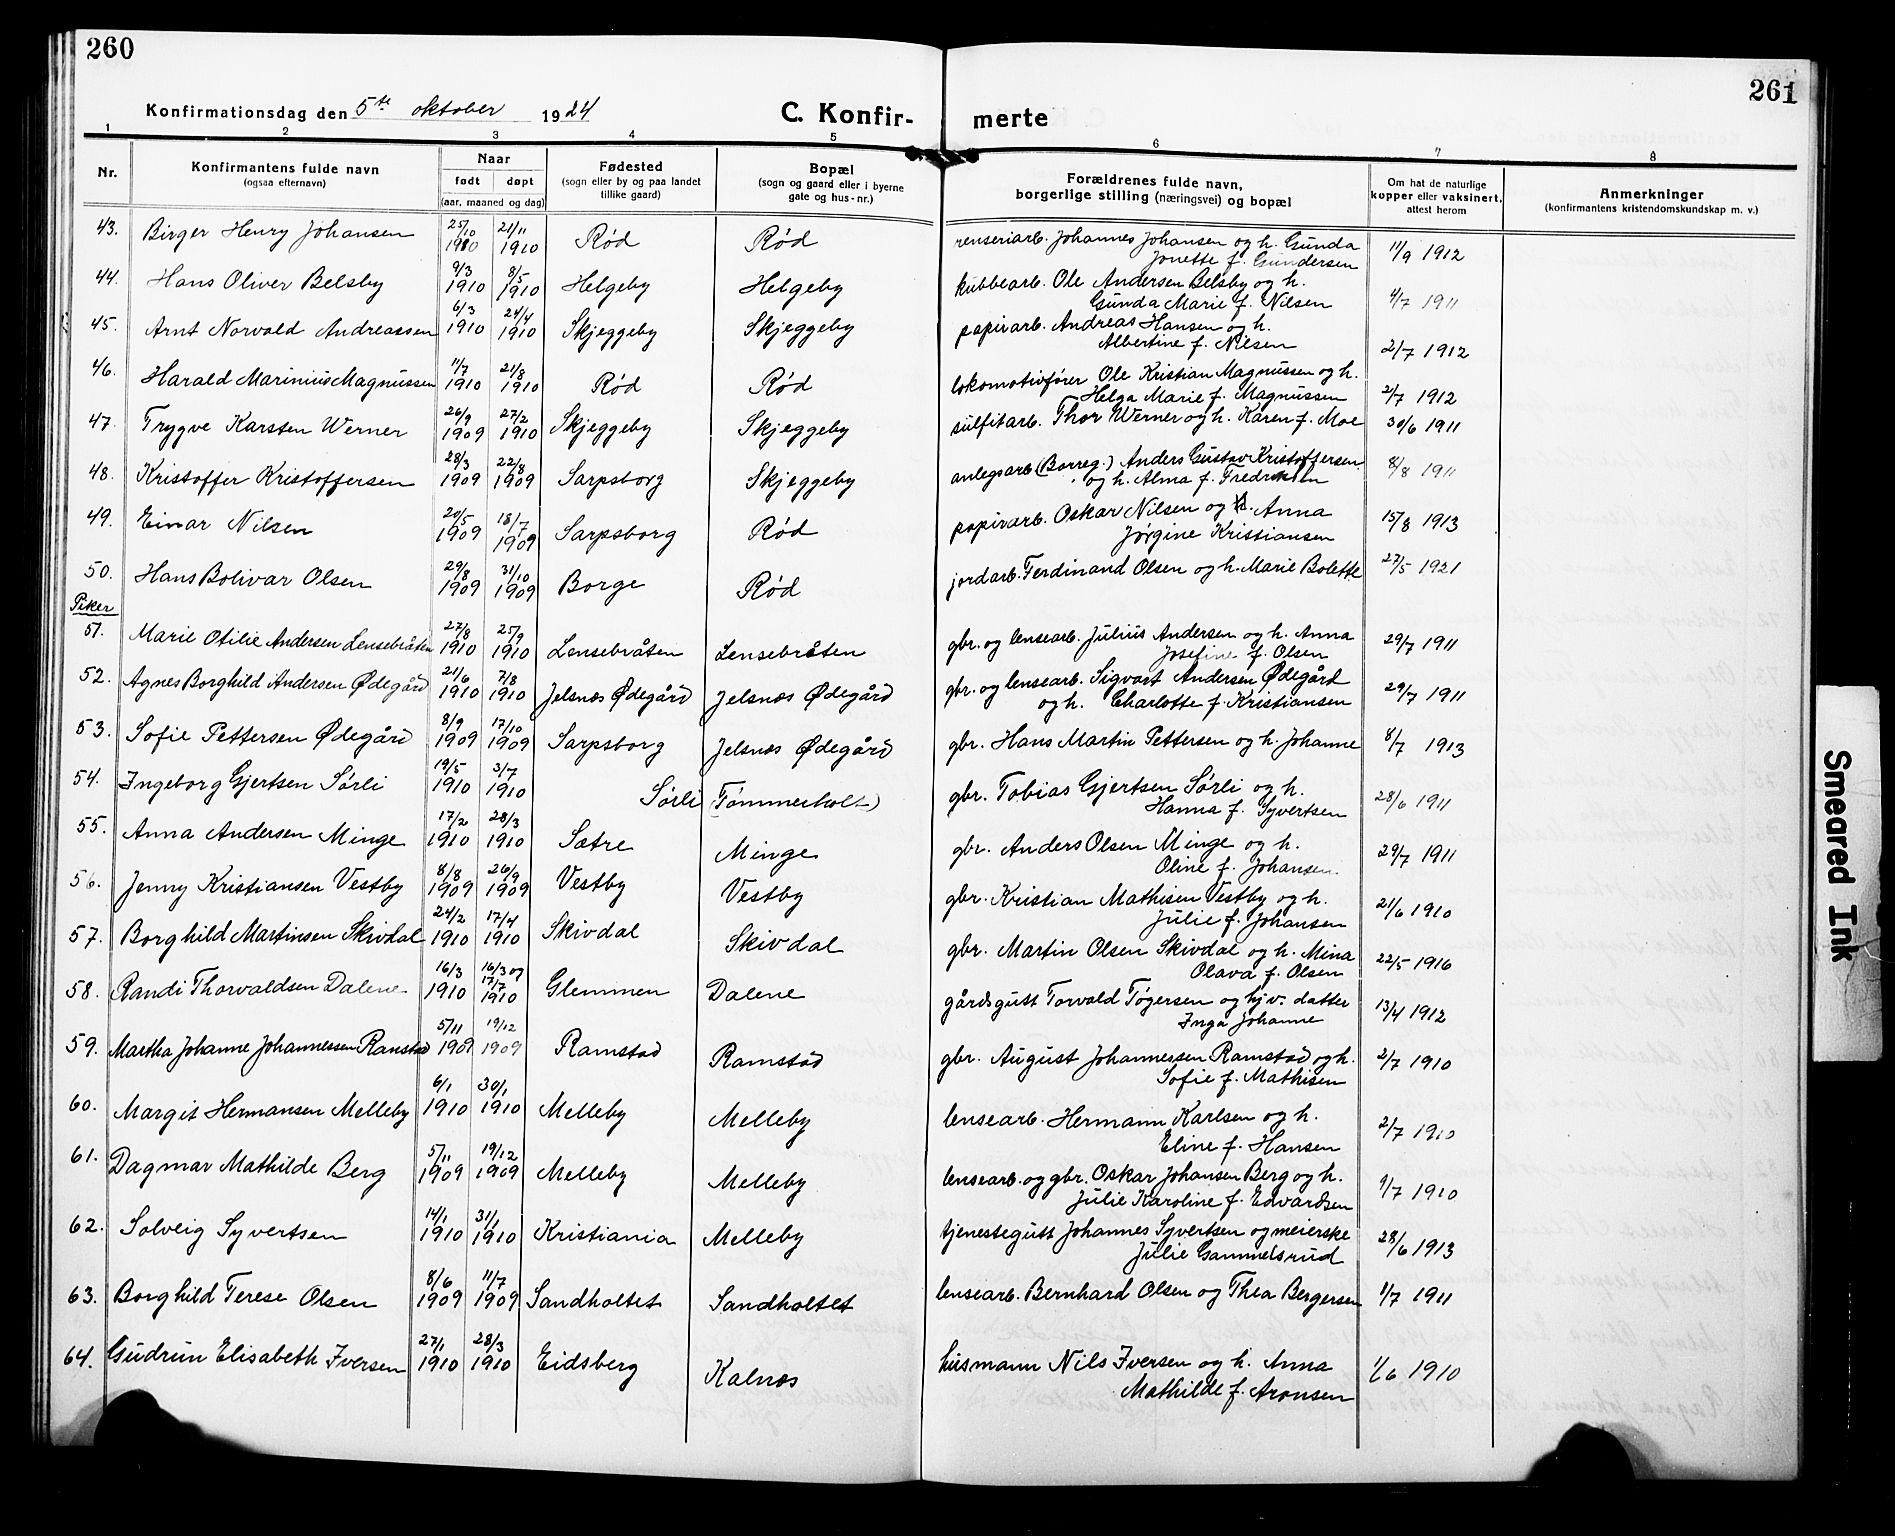 260
261
Konfirmationsdag den 5te oktober 1924
C. Konfir-
merte
1 2 3 4 5 6 7 8
Nr.
Konfirmantens fulde navn
(ogsaa efternavn)
Naar
født døpt
(aar, maaned og dag)
Fødested
(sogn eller by og paa landet
tillike gaard)
Bopæl
(sogn og gaard eller i byerne
gate og hus-nr.)
Forældrenes fulde navn,
borgerlige stilling (næringsvei) og bopæl
Om hat de naturlige
kopper eller vaksinert,
attest herom
Anmerkninger
(konfirmantens kristendomskundskap m. v.)
43. Birger Henry Johansen 25/10 1910 21/11 1910 Rød Rød renseriarb. Johannes Johansen og h. Gunda 11/9 1912
Jonette f. Gundersen
44. Hans Oliver Belsby 9/3 1910 8/5 1910 Helgeby Helgeby kubbearb. Ole Andersen Belsby og h.
Gunda Marie f. Nilsen 4/7 1911
45. Arnt Norvald Andreassen 6/3 1910 24/4 1910 Skjeggeby Skjeggeby papirarb. Andreas Hansen og h.
Albertine f. Nilsen 2/7 1912
46. Harald Marinius Magnussen 11/7 1910 21/8 1910 Rød Rød lokomotivfører Ole Kristian Magnussen og h.
Helga Marie f. Magnussen 2/7 1912
47. Trygve Karsten Werner 26/9 1909 27/2 1910 Skjeggeby Skjeggeby sulfitarb. Thor Werner og h. Karen f. Moe 30/6 1911
48. Kristoffer Kristoffersen 28/3 1909 22/8 1909 Sarpsborg Skjeggeby anlegsarb (Borreg.) Anders Gustav Kristoffersen 8/8 1911
og h. Alma f. Fredriksen
49. Einar Nilsen 20/5 1909 18/7 1909 Sarpsborg Rød papirarb. Oskar Nilsen og h. Anna 15/8 1913
Jørgine Kristiansen
50. Hans Bolivar Olsen 29/8 1909 31/10 1909 Borge Rød jordarb. Ferdinand Olsen og h. Marie Bolette 27/5 1921
Piker
51. Marie Otilie Andersen Lensebråten 27/8 1910 25/9 1910 Lensebråten Lensebråten gbr. og lensearb. Julius Andersen og h. Anna 29/7 1911
Josefine f. Olsen
52. Agnes Borghild Andersen Ødegård 21/6 1910 7/8 1910 Jelsnæs Ødegård Jelsnæs Ødegård gbr. og lensearb. Sigvart Andersen Ødegård 29/7 1911
og h. Charlotte f. Kristiansen
53. Sofie Pettersen Ødegård 8/9 1909 17/10 1909 Sarpsborg Jelsnæs Ødegård gbr. Hans Martin Pettersen og h. Johanne 8/7 1913
54. Ingeborg Gjertsen Sørli 19/5 1910 3/7 1910 Sørli (Tømmerholt) gbr. Tobias Gjertsen Sørli og h. 28/6 1911
Hanna f. Syvertsen
55. Anna Andersen Minge 17/2 1910 28/3 1910 Sætre Minge gbr. Anders Olsen Minge og h. 29/7 1911
Oline f. Johansen
56. Jenny Kristiansen Vestby 8/8 1909 26/9 1909 Vestby Vestby gbr. Kristian Mathisen Vestby og h. 21/6 1910
Julie f. Johansen
57. Borghild Martinsen Skivdal 24/2 1910 17/4 1910 Skivdal Skivdal gbr. Martin Olsen Skivdal og h. Mina 22/5 1916
Olava f. Olsen
58. Randi Thorvaldsen Dalene 16/3 1910 17/7 1910 Glemmen Dalene gårdsgutt Torvald Tøgersen og hjv. datter 13/4 1912
Inga Johanne
59. Martha Johanne Johannessen Ramstad 5/11 1909 19/12 1909 Ramstad Ramstad gbr. August Johannessen Ramstad og h. 2/7 1910
Sofie f. Mathisen
60. Margit Hermansen Melleby 6/1 1910 30/1 1910 Melleby Melleby lensearb. Hermann Karlsen og h. 2/7 1910
Eline f. Hansen
61. Dagmar Mathilde Berg 5/11 1909 19/12 1909 Melleby Melleby lensearb. og gbr. Oskar Johansen Berg og h. 9/7 1910
Julie Karoline f. Edvardsen
62. Solveig Syvertsen 14/1 1910 31/1 1910 Kristiania Melleby tjenestegutt Johannes Syvertsen og meierske 28/6 1913
Julie Gammelsrud
63. Borghild Terese Olsen 8/6 1909 11/7 1909 Sandholtet Sandholtet lensearb. Bernhard Olsen og Thea Bergersen 1/7 1911
64. Gudrun Elisabeth Iversen 27/1 1910 28/3 1910 Eidsberg Kalnæs husmann Nils Iversen og h. Anna 1/6 1910
Mathilde f. Aronsen
Smeared Ink